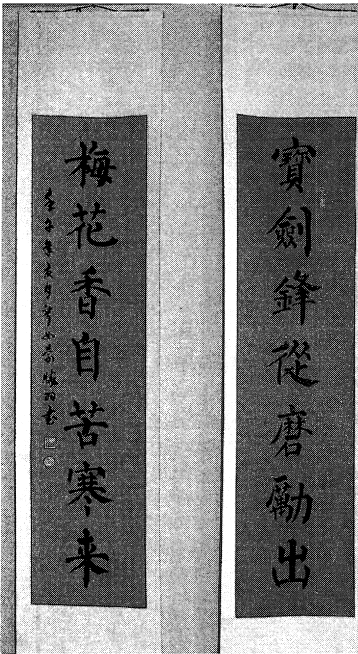 寶劍鋒從磨勵出
梅花香自苦寒来